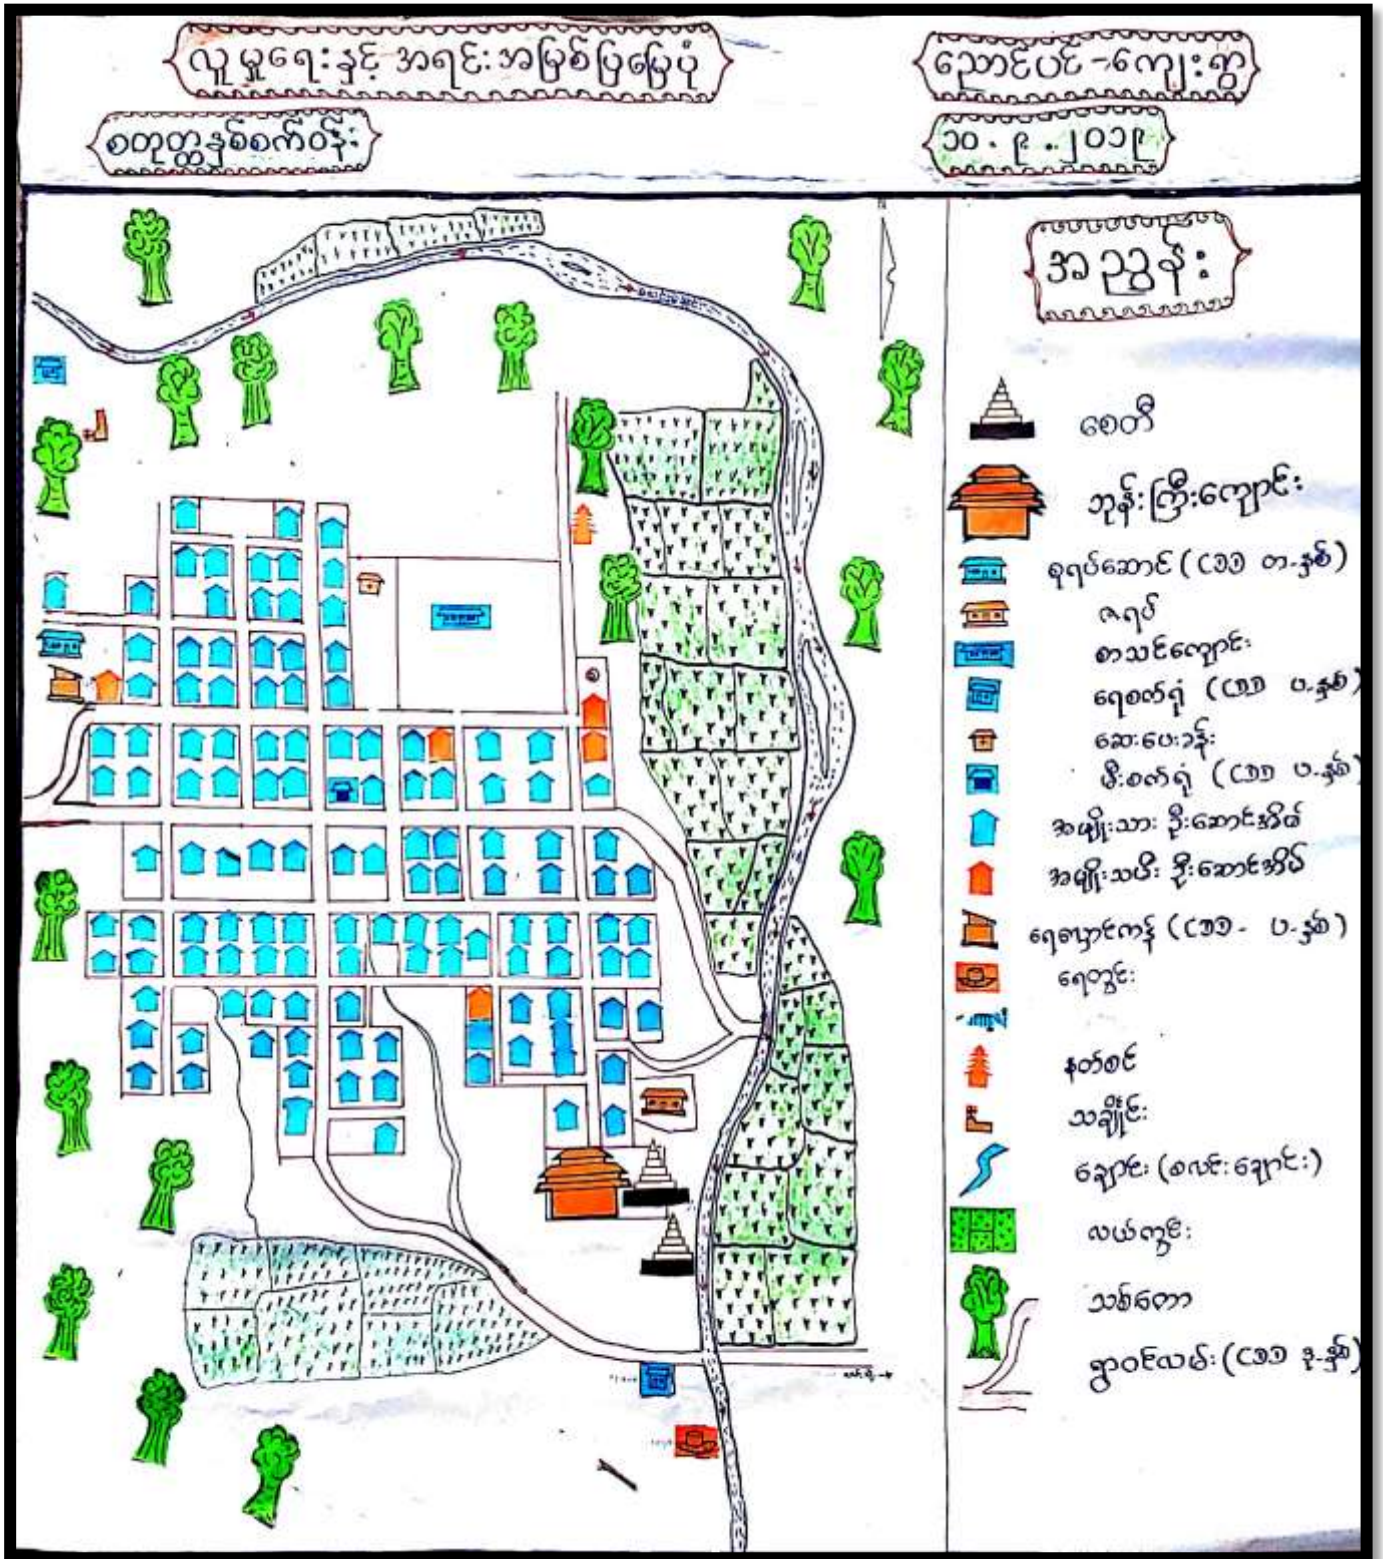 လူမှုရေးနှင့် အရင်းအမြစ်ပြမြေပုံ
ညောင်ပင်-ကျေးရွာ
စတုတ္ထနှစ်စက်ဝန်း
၁၀.၉.၂၀၁၉
အညွှန်း
စေတီ
ဘုန်းကြီးကျောင်း
စုရပ်ဆောင် (CDD တ-နှစ်)
ဇရပ်
စာသင်ကျောင်း
ရေစက်ရုံ (CDD ပ-နှစ်)
ဆေးပေးခန်း
မီးစက်ရုံ (CDD ပ-နှစ်)
အမျိုးသား ဦးဆောင်အိမ်
အမျိုးသမီး ဦးဆောင်အိမ်
ရေလှောင်ကန် (CDD - ပ-နှစ်)
ရေတွင်း
နတ်စင်
သချိုင်း
ချောင်း (စလင်းချောင်း)
လယ်ကွင်း
သစ်တော
ရွာဝင်လမ်း (CDD ဒု-နှစ်)